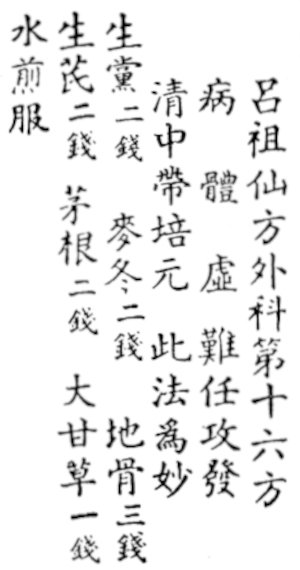 呂祖仙方外科第十六方
病體虛難任攻發
清中帶培元 此法為妙
生黨二錢 麥冬二錢 地骨三錢
生芪二錢 茅根二錢 大甘草一錢
水煎服